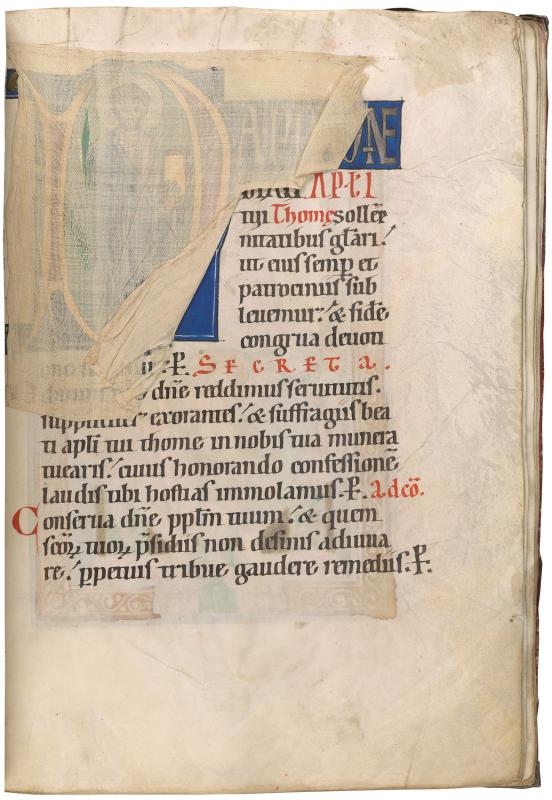 132
NE
APŁI
tui Thomę sollēp
nitatibus głari.
ut eius semp et
patrociniis sub
leuemur. & fidē
congrua deuoti
P. SECRETA.
dn̄e reddimus seruitutis.
suppliciter exorantes. & suffragiis bea
ti apłi tui thome in nobis tua munera
tuearis. cuius honorando confessionē
laudis tibi hostias immolamus. P. adcō.
Conserua dn̄e pplm̄ tuum. & quem
scōꝝ tuoꝝ p̄sidiis non desinis adiuua
re. ppetuis tribue gaudere remediis. P.